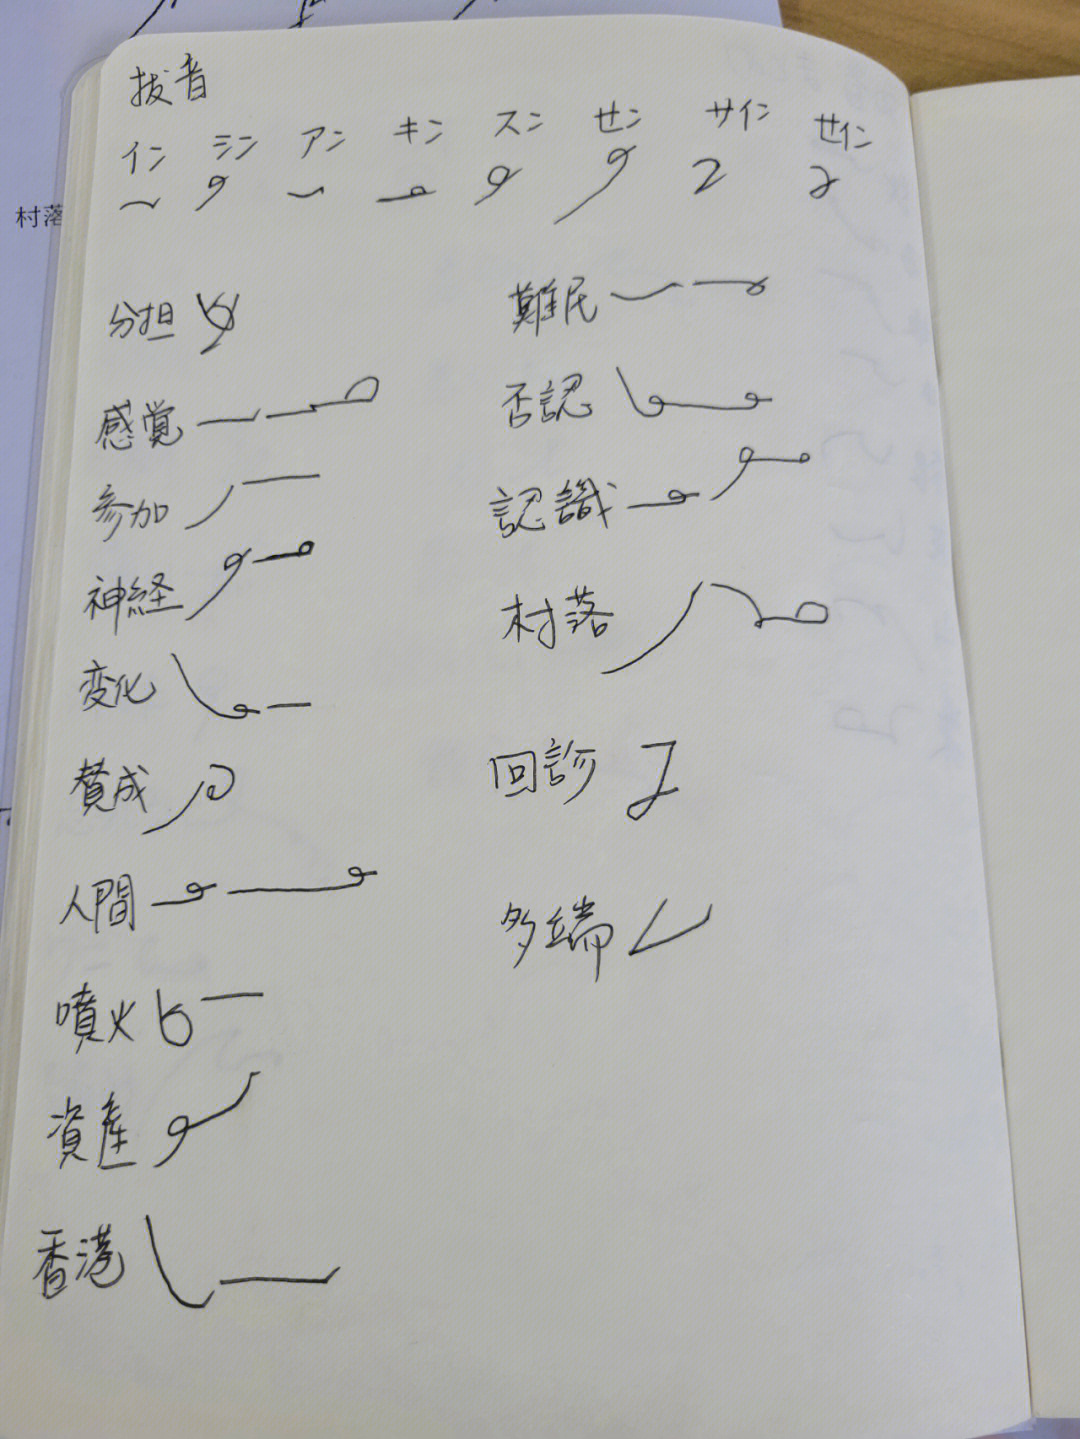 拔音
イン シン アン キン スン セン サイン せイン
村落
分担
感覚
参加
神経
変化
賛成
人間
噴火
資産
香港
難民
否認
認識
村落
回診
多端